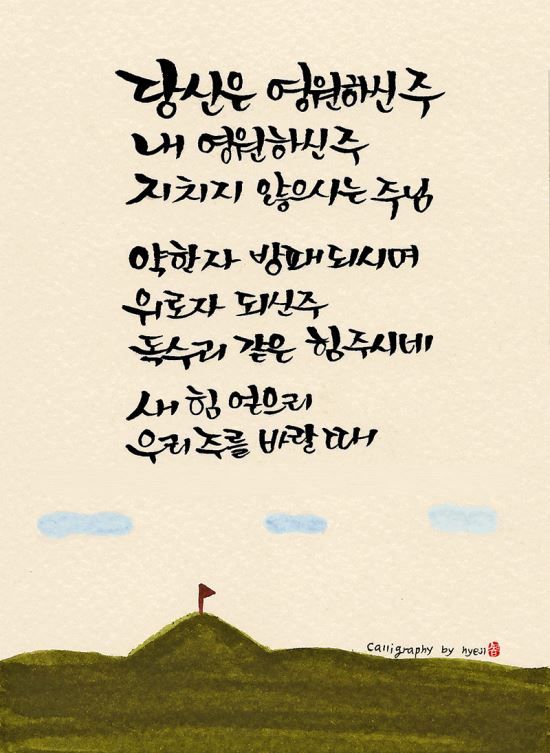 당신은 영원하신 주
내 영원하신 주
지치지 않으시는 주님
약한자 방패되시며
위로자 되신주
독수리 같은 힘주시네
새 힘 얻으리
우리 주를 바랄 때
Calligraphy by hyeji